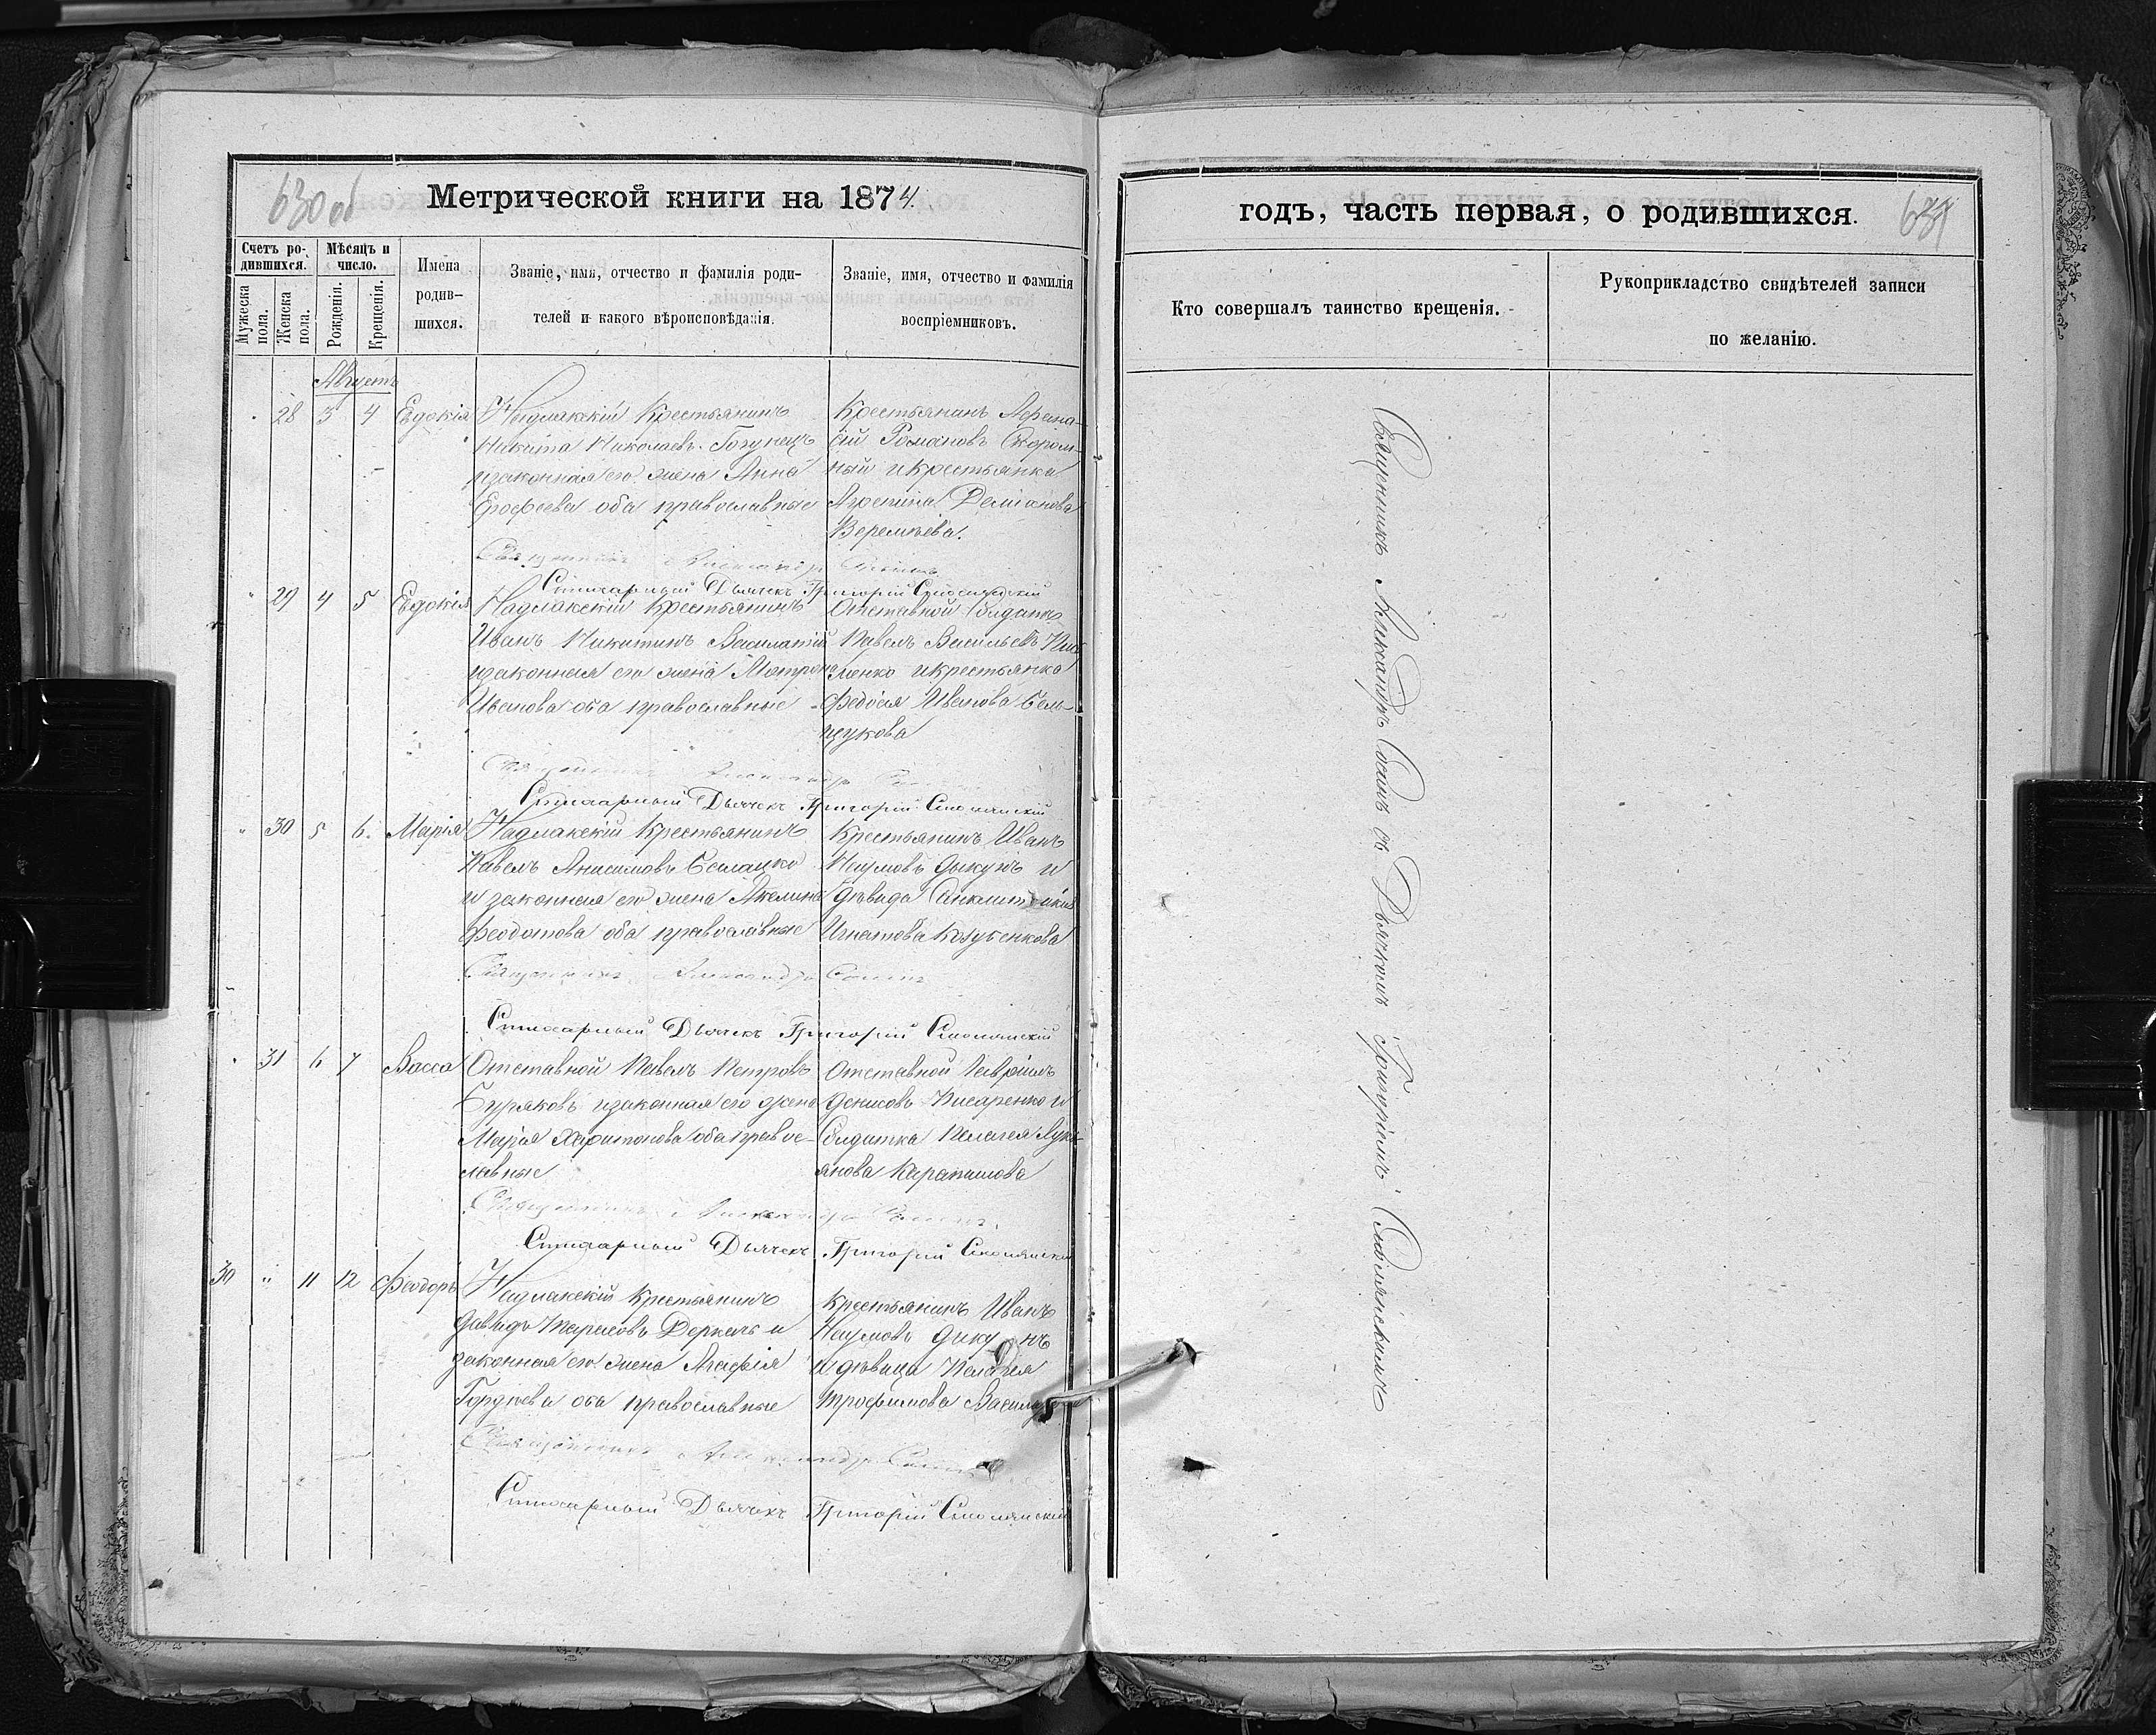 630 об
Метрической книги на 1874.
Счетъ ро-
дившихся.
Мѣсяцъ и
число.
Мужеска
пола.
Женска
пола.
Рожденія.
Крещенія.
Имена
родив-
шихся.
Званіе, имя, отчество и фамилія роди-
телей и какого вѣроисповѣданія.
Званіе, имя, отчество и фамилія
воспріемниковъ.
Августъ
28 3 4 Евдокія Надлакскій Крестьянинъ
Никита Николаевъ
изаконная его жена Анна
Ерофеева оба православные
Крестьянинъ Афана-
сій Романовъ Скором-
ный икрестьянка
Агрепина Деміанова
Веремѣева.
Священникъ Александръ
Стихарный Дьячекъ Григорій
29 4 5 Евдокія Надлакскій Крестьянинъ
Иванъ Никитинъ
изаконная его жена Матрона
Иванова оба православные
Отставной Солдатъ
Павелъ Васильевъ
ленко икрестьянка
Федосія Иванова Сель-
щукова
Священникъ Александръ
Стихарный Дьячекъ Григорій
" 30 5 6. Марія Надлакскій Крестьянинъ
Павелъ Анисимовъ
и законная его жена Акелина
Феодотова оба православные
Крестьянинъ Иванъ
Наумовъ Дикунъ и
Игнатова
Священникъ Александръ
Стихарный Дьячекъ Григорій
31 6 7 Васса Отставной Павелъ Петровъ
Буряковъ изаконная его жена
Марія Харитонова оба право-
славные
Отставной Гавріилъ
Денисовъ Писаренко и
Солдатка Пелагея Лукь-
янова
Священникъ Александръ
Стихарный Дьячекъ Григорій
30 " 11 12 Феодоръ Надлакскій Крестьянинъ
Давидъ Тарасовъ Деркачъ и
законная его жена Агафія
Гордѣева оба православные
Крестьянинъ Иванъ
Наумовъ Дикунъ
и дѣвица Пелагея
Трофимова
Священникъ Александръ
Стихарный Дьячекъ Григорій
годъ, часть первая, о родившихся.
631
Кто совершалъ таинство крещенія.
Рукоприкладство свидѣтелей записи
по желанію.
Священникъ Александръ съ Дьячкомъ Григоріемъ